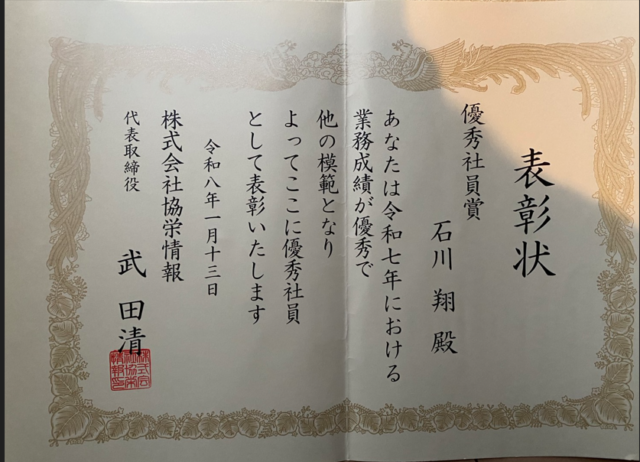 表彰状
優秀社員賞
石川 翔 殿
あなたは令和七年における
業務成績が優秀で
他の模範となり
よってここに優秀社員
として表彰いたします
令和八年一月十三日
株式会社協栄情報
代表取締役
武田清